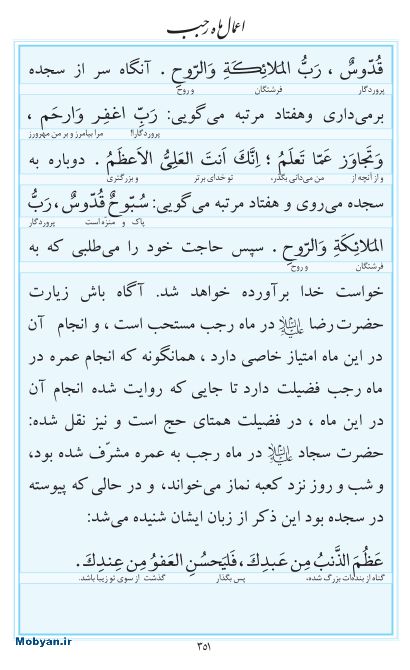 اعمال ماه رجب
قُدّوسٌ ، رَبُّ المَلائِكَةِ وَالرّوحِ . آنگاه سر از سجده
پروردگار فرشتگان و روح
برمی‌داری وهفتاد مرتبه می‌گویی: رَبِّ اغفِر وَارحَم ،
پروردگارا! مرا بیامرز و بر من مهرورز
وَتَجاوَز عَمّا تَعلَمُ ؛ اِنَّكَ اَنتَ العَلِیُّ الاَعظَمُ . دوباره به
و از آنچه از من می‌دانی بگذر، تو خدای برتر و بزرگتری
سجده می‌روی و هفتاد مرتبه می‌گویی: سُبّوحٌ قُدّوسٌ ، رَبُّ
پاک و منزّه است پروردگار
المَلائِكَةِ وَالرّوحِ . سپس حاجت خود را می‌طلبی که به
فرشتگان و روح
خواست خدا برآورده خواهد شد. آگاه باش زیارت
حضرت رضا علیه‌السلام در ماه رجب مستحب است ، و انجام آن
در این ماه امتیاز خاصی دارد ، همانگونه که انجام عمره در
ماه رجب فضیلت دارد تا جایی که روایت شده انجام آن
در این ماه ، در فضیلت همتای حج است و نیز نقل شده:
حضرت سجاد علیه‌السلام در ماه رجب به عمره مشرّف شده بود،
و شب و روز نزد کعبه نماز می‌خواند، و در حالی که پیوسته
در سجده بود این ذکر از زبان ایشان شنیده می‌شد:
عَظُمَ الذَّنبُ مِن عَبدِكَ ، فَليَحسُنِ العَفوُ مِن عِندِكَ .
گناه از بنده‌ات بزرگ شده، پس بگذار گذشت از سوی تو زیبا باشد.
۳۵۱
Mobyan.ir